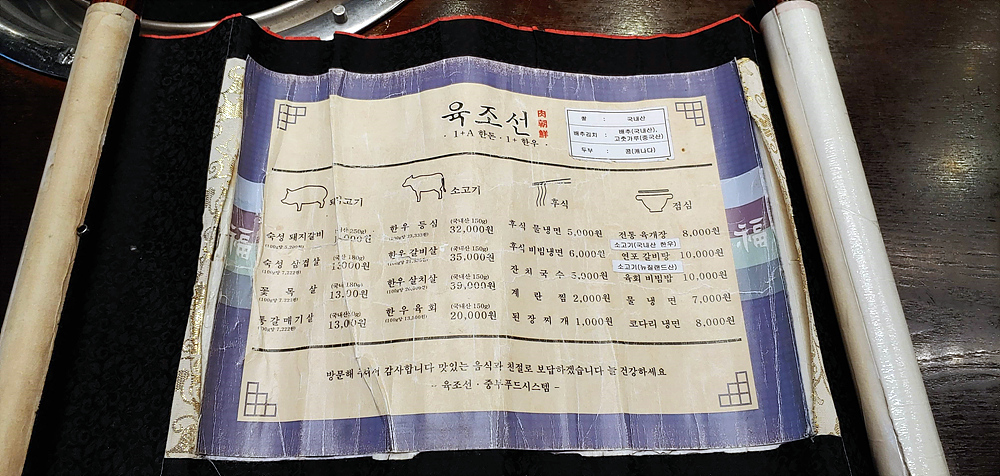 육조선 肉朝鮮
· 1+A 한돈 · 1+ 한우 ·
쌀 : 국내산
배추김치 : 배추(국내산), 고춧가루(중국산)
두부 : 콩(캐나다)
돼지고기
숙성 돼지갈비 (국내산 250g)
숙성 삼겹살 (국내산 180g) 13,000원
(100g당 7,222원)
꽃목살 (국내산 180g) 13,000원
(100g당 7,222원)
통갈매기살 13,000원
(100g당 7,222원)
소고기
한우 등심 (국내산 150g) 32,000원
한우 갈비살 (국내산 150g) 35,000원
한우 살치살 (국내산 150g) 39,000원
한우 육회 (국내산 150g) 20,000원
후식
후식 물냉면 5,000원
후식 비빔냉면 6,000원
잔치국수 5,000원
계란찜 2,000원
된장찌개 1,000원
점심
전통 육개장 8,000원
소고기(국내산 한우)
연포 갈비탕 10,000원
소고기(뉴질랜드산)
육회 비빔밥 10,000원
물냉면 7,000원
코다리 냉면 8,000원
방문해 감사합니다 맛있는 음식과 친절로 보답하겠습니다 늘 건강하세요
- 육조선 · 중부푸드시스템 -
福